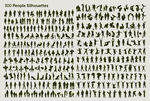 300 People Silhouettes